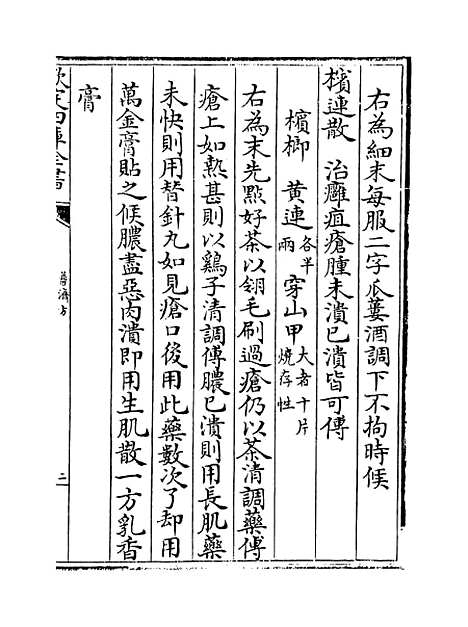 右為細末每服二字瓜蔞酒調下不拘時候
檳連散　治癰疽瘡腫未潰已潰皆可傅
檳榔　黃連各半兩　穿山甲大者十片燒存性
右為末先點好茶以翎毛刷過瘡仍以茶清調藥傅
瘡上如熱甚則以鷄子清調傅膿已潰則用長肌藥
未快則用替針丸如見瘡口後用此藥數次了却用
萬金膏貼之候膿盡惡肉潰即用生肌散一方乳香
膏
欽定四庫全書
普濟方
二